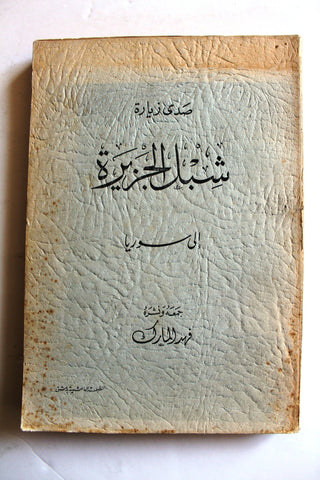 صدى زيارة
شبل الجزيرة
إلى سوريا
جمعه ونشره
فهد المارك